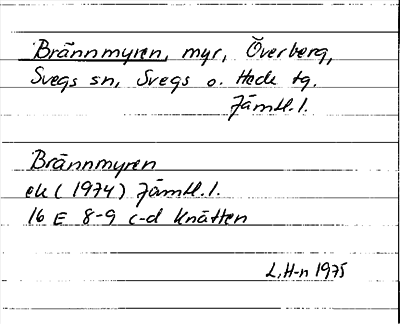 Brännmyren, myr, Överberg,
Svegs sn, Svegs o. Hede tg.
Jämtl. l.
Brännmyren
ek (1974) Jämtl. l.
16 E 8-9 c-d Knätten
L.H-n 1975